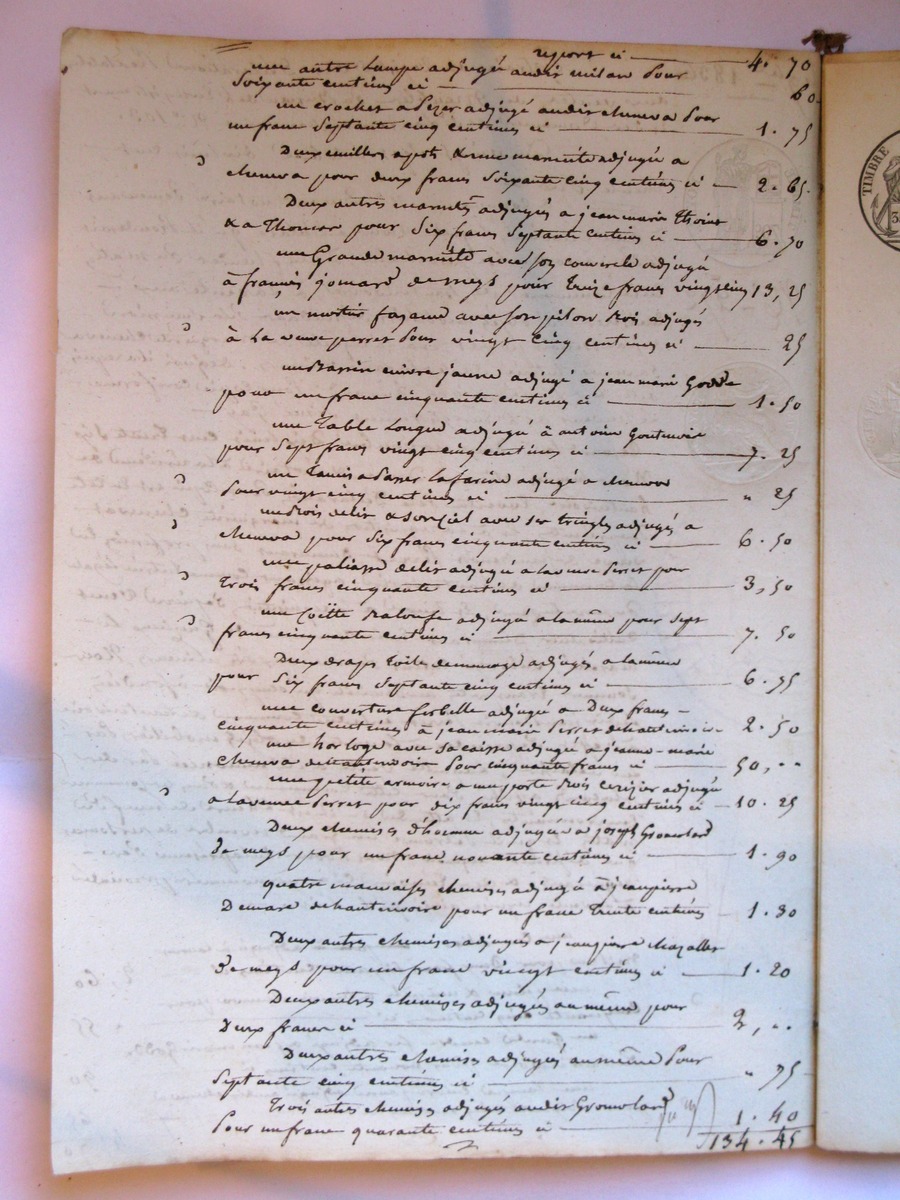 report ci 4. 70
une autre Lampe adjugée audit milan pour
Soixante centimes ci 60
un crochet a pezer adjugé audit cheneva pour
un franc Septante cinq centimes ci 1. 75
Deux cuillers a pots & une marmite adjugée a
cheneva pour deux francs Soixante cinq centimes ci 2. 65
Deux autres marmites adjugées a jean marie Thoint
& a Thoncer pour Six francs Septante centimes ci 6. 70
une Grande marmite avec son couvercle adjugé
à francois jomard de meys pour treize francs vingt cinq 13, 25
un mortier fayance avec son pilon Bois adjugés
à La veuve perret pour vingt cinq centimes ci 25
un Bassin cuivre jaune adjugé a jean marie Godde
pour un franc cinquante centimes ci 1. 50
une Table Longue adjugée à antoine Goutenoire
pour Sept francs vingt cinq centimes ci 7. 25
un Tamis a passer La farine adjugé a cheneva
pour vingt cinq centimes ci " 25
un Bois de lit & son ciel avec ses tringles adjugés a
cheneva pour Six francs cinquante centimes ci 6. 50
une paliasse de lit adjugée a la veuve Perret pour
Trois francs cinquante centimes ci 3, 50
une Coitte Balouffe adjugée a la même pour Sept
francs cinquante centimes ci 7. 50
Deux draps toile de menage adjugés a la même
pour Six francs Septante cinq centimes ci 6. 75
une couverture adjugée a Deux francs -
cinquante centimes à jean marie Perret de hauterivoire 2. 50
une horloge avec Sa caisse adjugée a jeanne-marie
cheneva de hauterivoire pour cinquante francs ci 50, "
une petite armoire a une porte Bois cerizier adjugée
a la veuve Perret pour dix francs vingt cinq centimes ci 10. 25
Deux chemises d'homme adjugées a joseph Gromolard
De meys pour un franc novante centimes ci 1. 90
quatre mauvaises chemises adjugées à jean pierre
Demare de hauterivoire pour un franc trente centimes 1. 30
Deux autres chemises adjugées a jean pierre Mazalles
De meys pour un franc vingt centimes ci 1. 20
Deux autres chemises adjugées au même pour
Deux francs ci 2, "
Deux autres chemises adjugées au même pour
Septante cinq centimes ci " 75
Trois autres chemises adjugées audit Gromolard
pour un franc quarante centimes ci 1. 40
134. 45
TIMBRE